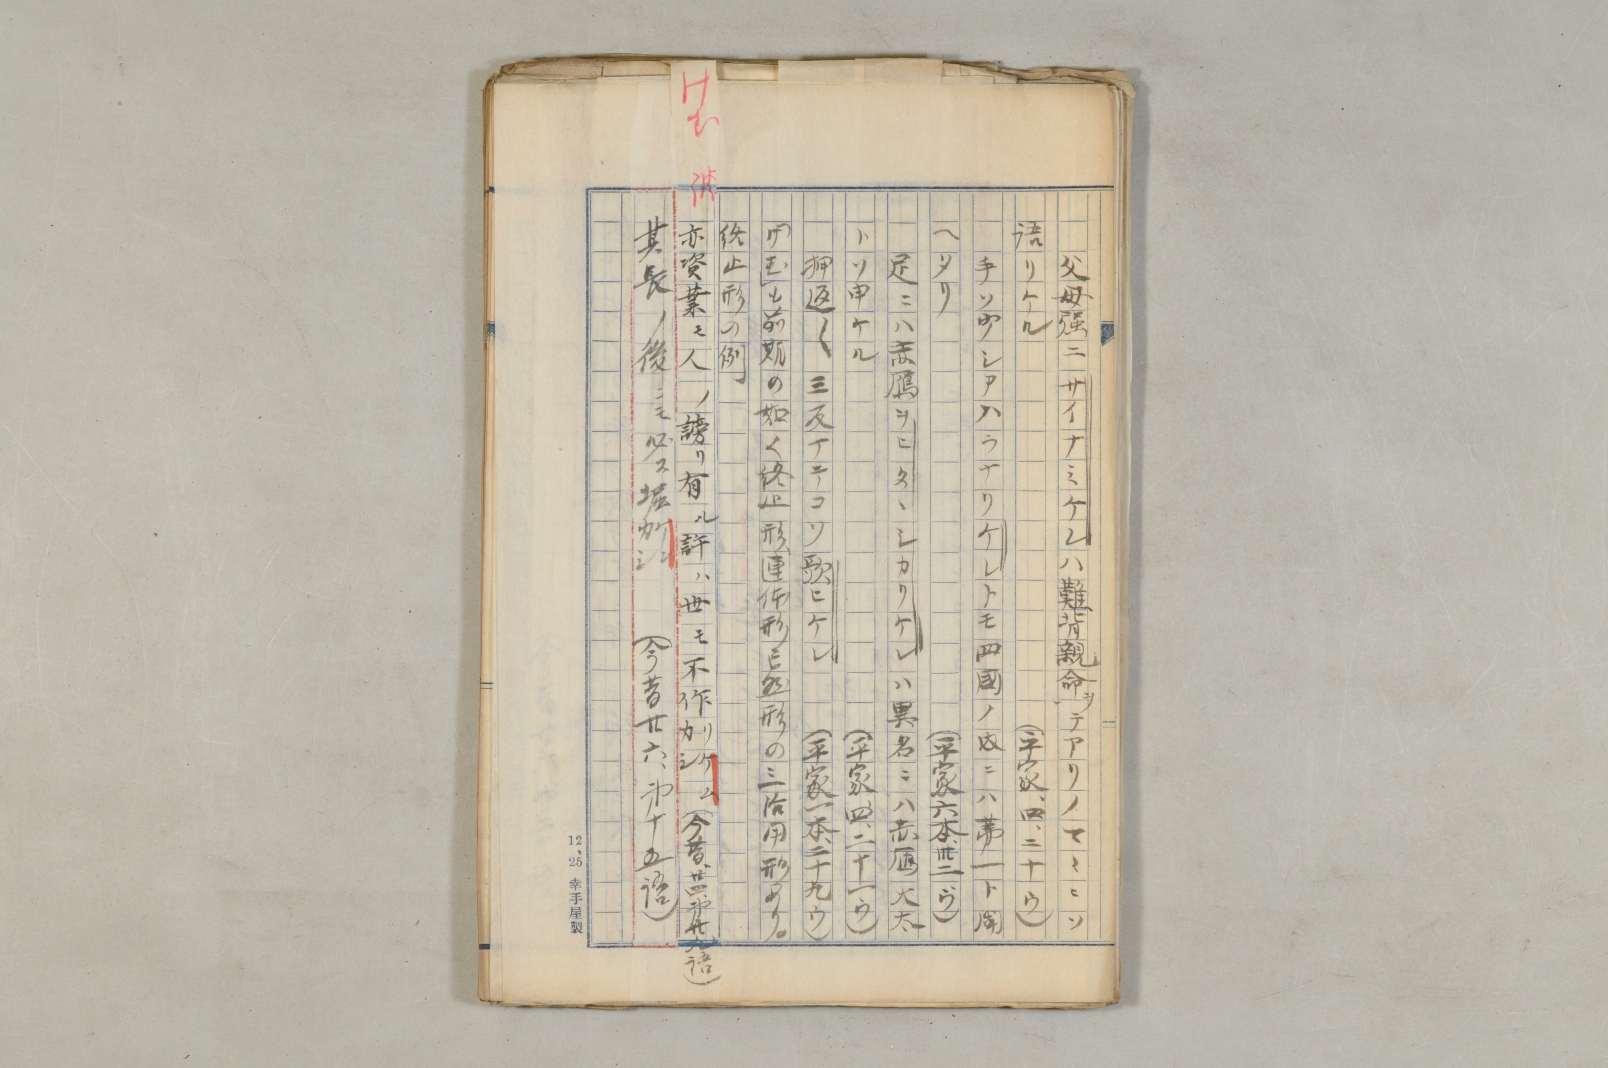 父母強ニサイナミケレハ難背親命ヲテアリノマヽニソ
語リケル
(平家、四、二十ウ)
手ソ少シアハラナリケレトモ四國ノ成ニハ第一ト聞
ヘタリ
(平家六本、卅二ウ)
足ニハ赤鴈ヲヒタヽシカリケレハ異名ニハ赤鴈大太
トソ申ケル
(平家四、二十一ウ)
押返〱三反マテコソ歌ヒケレ
(平家一本、二十九ウ)
「けむ」も前期の如く終止形連体形已然形の三活用形あり。
終止形の例」
亦資業モ人ノ謗リ有ル許ハ世モ不作リケム
作カシ
(今昔、廿四、第廿九語)
其長ノ後ニモ必ス堀ケン
カシ
(今昔廿六、第十五語)
けむ
12,25 幸手屋製